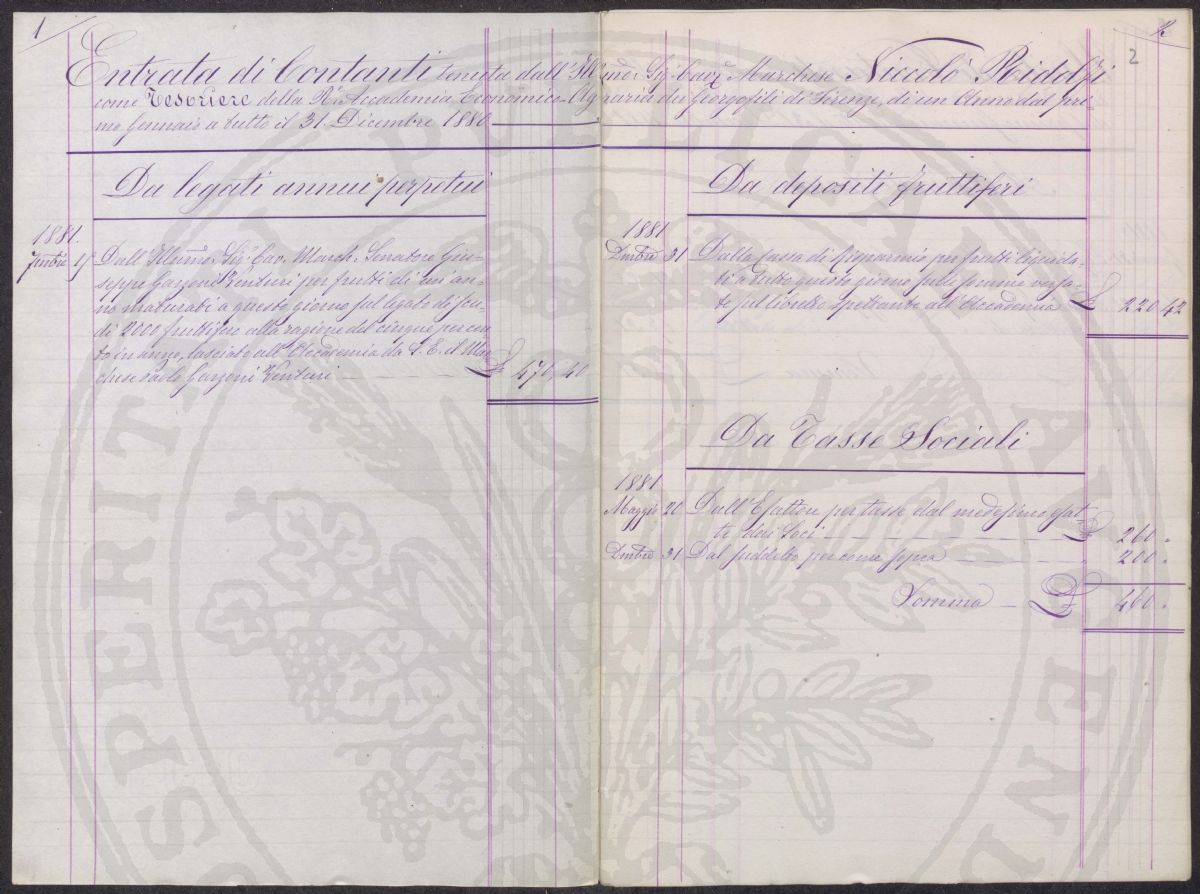 1
2
Entrata di Contanti tenuta dall' Illmo Sig. Cav. Marchese Niccolò Ridolfi
come Tesoriere della R. Accademia Economico-Agraria dei Georgofili di Firenze, di un Anno dal pri-
mo Gennaio a tutto il 31. Dicembre 1880
Da legati annui perpetui
1881.
Dall' Illumo Sig. Cav. March. Senatore Giu-
seppe Garzoni Venturi per frutti di un' an-
no maturati a questo giorno sul legato di scu-
di 2000 fruttifero alla ragione del cinque per cen-
to in anno, lasciato all' Accademia da S. E. il Mar-
chese Paolo Garzoni Venturi £ 476, 40
Da depositi fruttiferi
1881
Dmbre 31 Dalla Cassa di Risparmio per frutti liquida-
ti a tutto questo giorno sulle somme versa-
te sul libretto spettante all' Accademia £ 220 42
Da Tasse Sociali
1881
Maggio 20 Dall' Esattore per tasse dal medesimo esat-
te dai Soci £ 260 "
Dmbre 31 Dal suddetto per come sopra " 200 "
Somma £ 460 "
PROSPERITATI PUBLICAE AUGENDAE